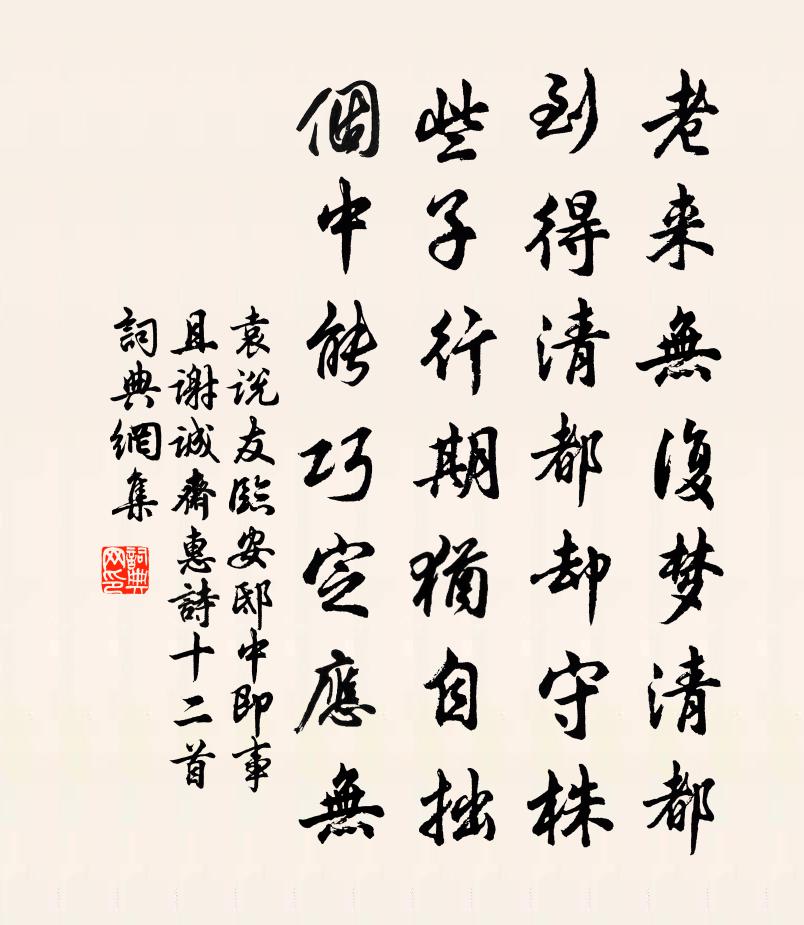 老来無復梦清都
到得清都却守株
些子行期猶自拙
個中能巧定應無
袁说友臨安邸中即事
且谢诚齋惠詩十二首
詞典網集
詞典网印